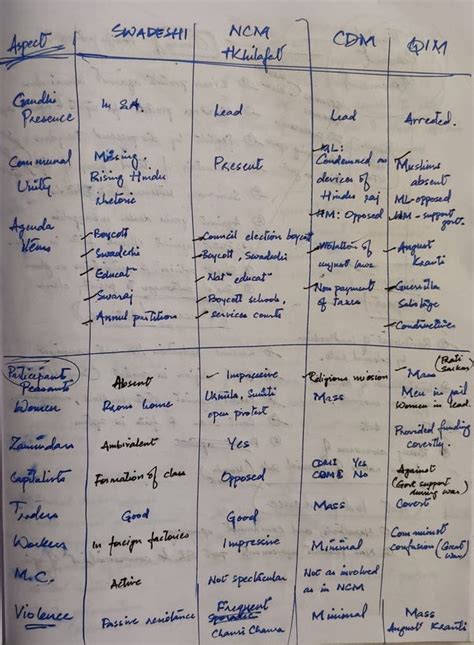 Aspect SWADESHI NCM CDM QIM
+Khilafat
Gandhi In S.A. Lead Lead Arrested.
Presence
Communal Missing. Present ML: Muslims
Unity Rising Hindu Condemned as absent
rhetoric devices of ML-opposed
Hindu raj HM-support
HM: Opposed govt.
Agenda Boycott Council election boycott Violation of August
Items Swadeshi Boycott, Swadeshi unjust laws Kranti
Educatn Natn educatn Non payment Guerilla
Swaraj Boycott schools, of taxes Sabotage
Annul partition services courts Constructive
Participants (Prati Sarkar)
Peasants Absent Impressive Religious mission Mass
Women From home Urmila, Suniti Mass Men in jail
open protest Women in lead.
Zamindars Ambivalent Yes Provided funding
covertly.
Capitalists Formation of class Opposed CDM I Yes Against
CDM II No (Govt support
during war)
Traders Good Good Mass Covert
Workers In foreign factories Impressive Minimal Communist
confusion (Great War)
M.C. Active Not spectacular Not as involved
as in NCM
Violence Passive resistance Frequent Minimal Mass
Sporadic August Kranti
Chauri Chaura